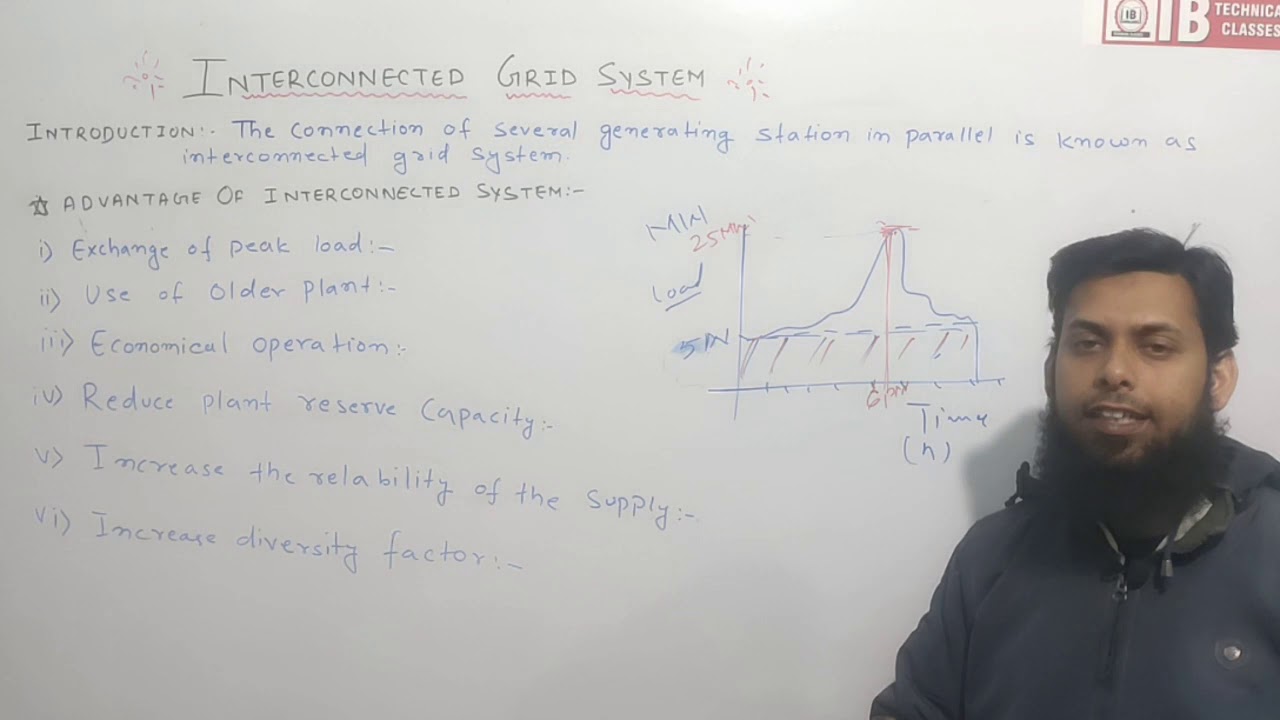 IB TECHNICAL CLASSES
INTERCONNECTED GRID SYSTEM
INTRODUCTION:- The connection of several generating station in parallel is known as
interconnected grid system.
☆ ADVANTAGE OF INTERCONNECTED SYSTEM:-
i) Exchange of peak load:-
ii) Use of Older plant:-
iii) Economical operation:-
iv) Reduce plant reserve Capacity:-
v) Increase the relability of the supply:-
vi) Increase diversity factor:-
25 MW
Load
6 pm
Time
(h)